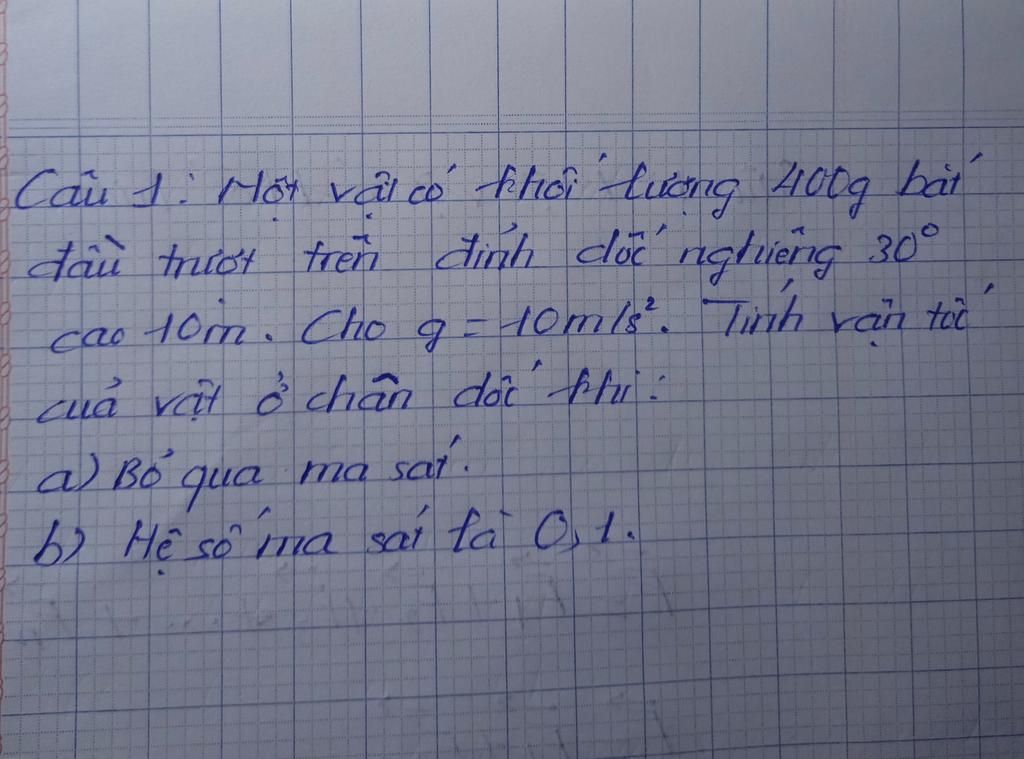 Câu 1: Một vật có khối lượng 400g bắt
đầu trượt trên đỉnh dốc nghiêng 30°
cao 10m. Cho g = 10m/s². Tính vận tốc
của vật ở chân dốc khi:
a) Bỏ qua ma sát.
b) Hệ số ma sát là 0,1.